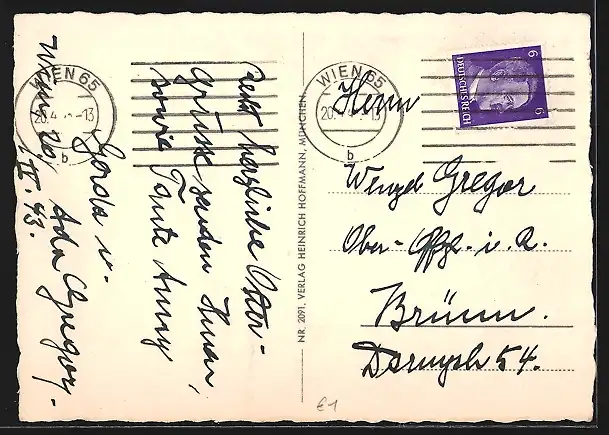 WIEN 65
20. 4. -13
b
Recht herzliche Oster-
grüsse senden Ihnen,
sowie Tante Anny
Gerda u.
Ada Gregor.
Wien 20/IV. 43.
NR. 2091, VERLAG HEINRICH HOFFMANN, MÜNCHEN
WIEN 65
20. -13
b
DEUTSCHES REICH
6
6
Herrn
Wenzel Gregor
Ober-Offzl. i. R.
Brünn.
54.
E1